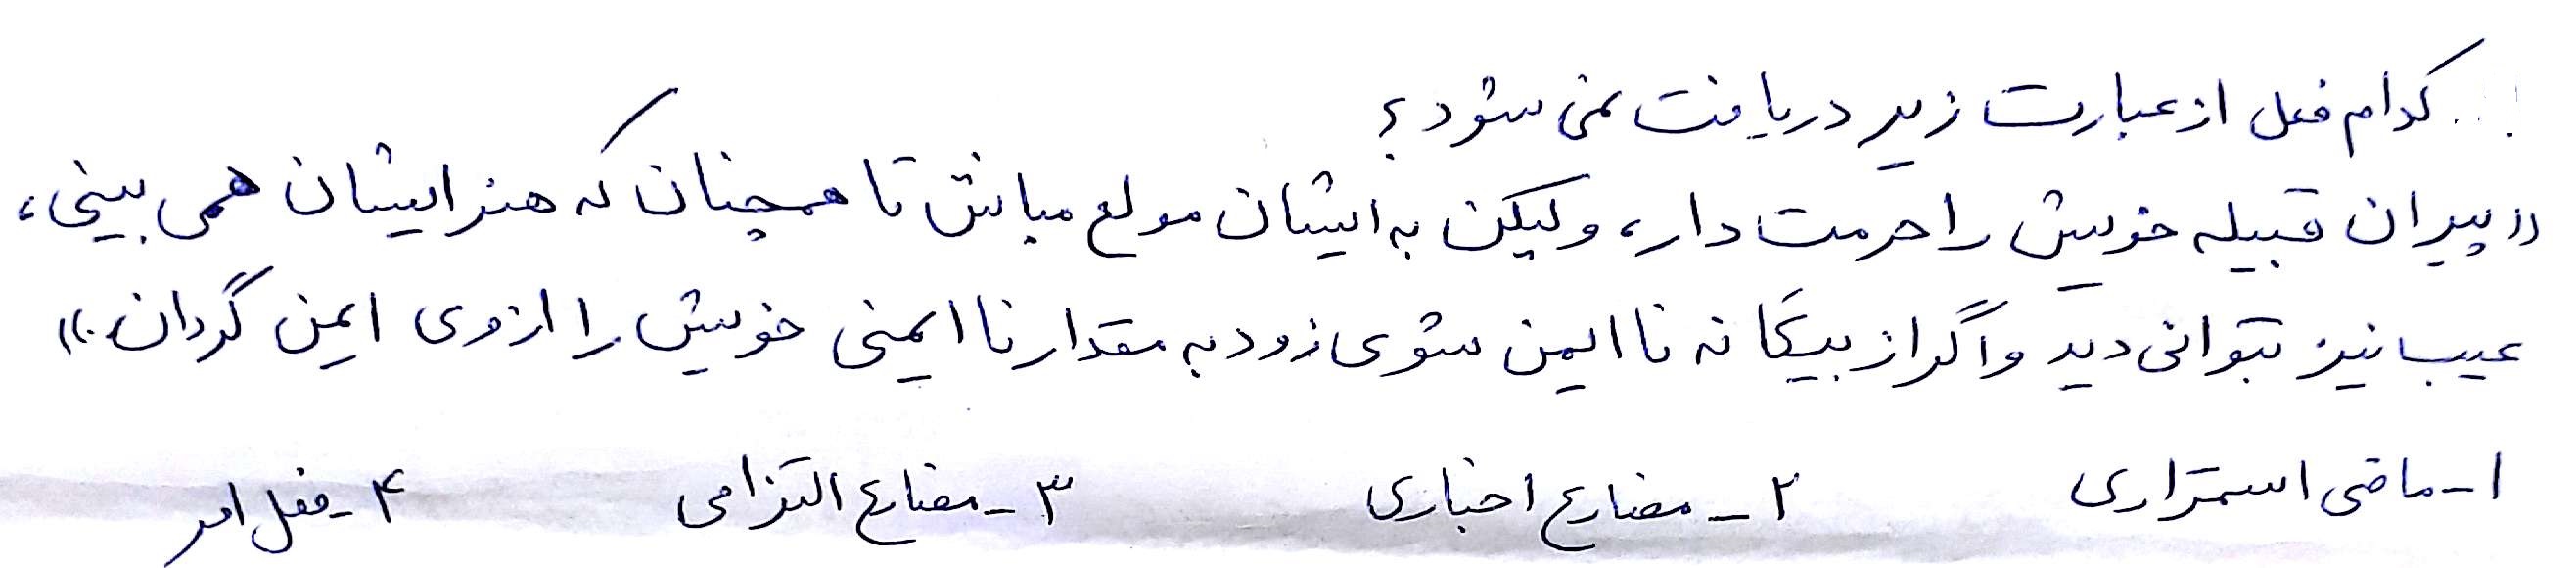 کدام فعل از عبارت زیر دریافت نمی شود؟
«پیران قبیله خویش را حرمت دار، ولیکن به ایشان مولع مباش تا همچنان که هنر ایشان همی بینی،
عیب نیز بتوانی دید و اگر از بیگانه نا ایمن شوی زود به مقدار نا ایمنی خویش را از وی ایمن گردان.»
۱- ماضی استمراری ۲- مضارع اخباری ۳- مضارع التزامی ۴- فعل امر